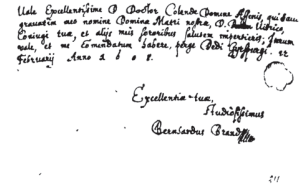 Vale Excellentissime D Doctor Colende Domine Affinis, qui
meo nomine Domina Matri nostræ, D.
Coniugi tuæ, et alijs meis sororibus salutem impertieris,
vale, et me Comendatum habere, perge Dedi
Februarij Anno 1608.
Excellentiæ tuæ,
Studiosissimus
Bernardus Brand